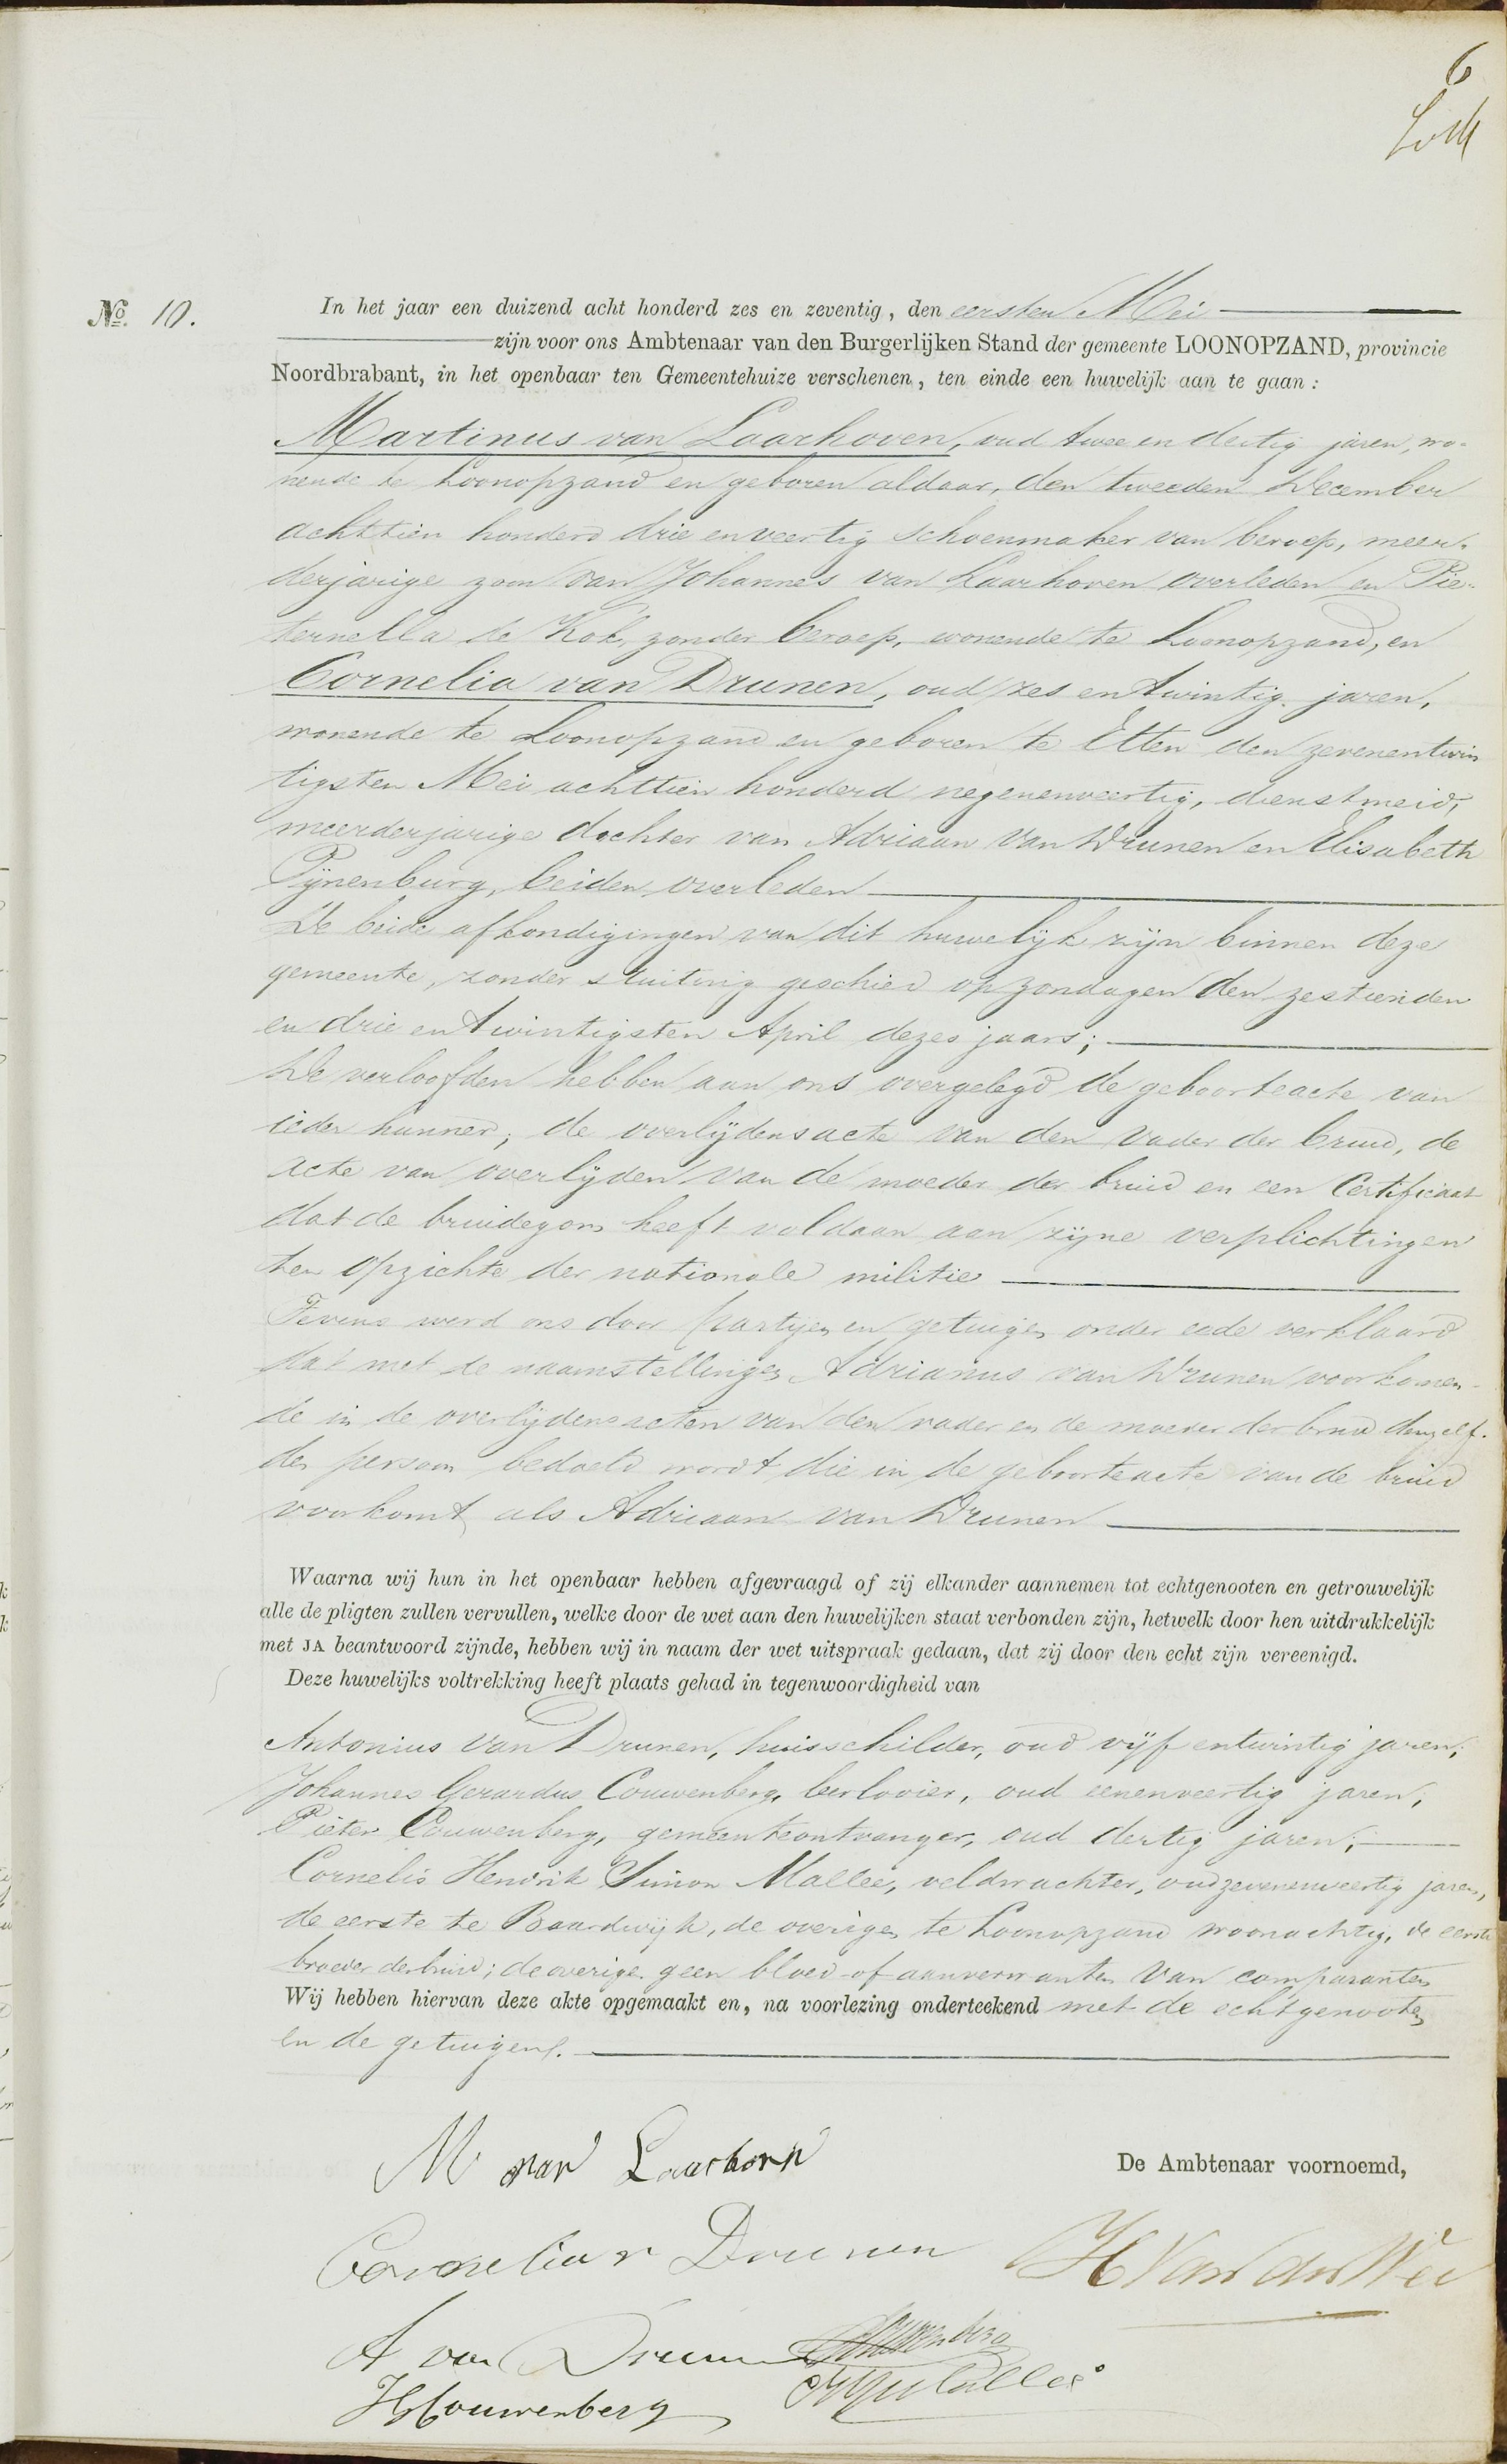 6
No. 10.
In het jaar een duizend acht honderd zes en zeventig, den eersten Mei
zijn voor ons Ambtenaar van den Burgerlijken Stand der gemeente LOONOPZAND, provincie
Noordbrabant, in het openbaar ten Gemeentehuize verschenen, ten einde een huwelijk aan te gaan:
Martinus van Laarhoven, oud twee en dertig jaren, wo-
nende te Loonopzand en geboren aldaar, den tweeden December
achttien honderd drie en veertig schoenmaker van beroep, meer-
derjarige zoon van Johannes van Laarhoven overleden en Pie-
ternella de Kok, zonder beroep, wonende te Loonopzand, en
Cornelia van Drunen, oud zes en twintig jaren,
wonende te Loonopzand en geboren te Etten den zevenentwin
tigsten Mei achttien honderd negenenveertig, dienstmeid,
meerderjarige dochter van Adriaan van Drunen en Elisabeth
Pijnenburg, beiden overleden
De beide afkondigingen van dit huwelijk zijn binnen deze
gemeente, zonder stuiting geschied op zondagen den zestienden
en drie en twintigsten April dezes jaars;
De verloofden hebben aan ons overgelegd de geboorteacte van
ieder hunner; de overlijdensacte van den vader der bruid, de
acte van overlijden van de moeder der bruid en een Certificaat
dat de bruidegom heeft voldaan aan zijne verplichtingen
ten opzichte der nationale militie
Tevens werd ons door partijen en getuigen onder eede verklaard
dat met de naamstellingen Adrianus van Drunen voorkomen-
de in de overlijdensacten van den vader en de moeder der bruid denzelf-
den persoon bedoeld wordt die in de geboorteacte van de bruid
voorkomt als Adriaan van Drunen
Waarna wij hun in het openbaar hebben afgevraagd of zij elkander aannemen tot echtgenooten en getrouwelijk
alle de pligten zullen vervullen, welke door de wet aan den huwelijken staat verbonden zijn, hetwelk door hen uitdrukkelijk
met JA beantwoord zijnde, hebben wij in naam der wet uitspraak gedaan, dat zij door den echt zijn vereenigd.
Deze huwelijks voltrekking heeft plaats gehad in tegenwoordigheid van
Antonius van Drunen, huisschilder, oud vijf entwintig jaren;
Johannes Gerardus Couwenberg, leerlooier, oud eenenveertig jaren;
Pieter Couwenberg, gemeenteontvanger, oud dertig jaren;
Cornelis Hendrik Simon Mallee, veldwachter, oud zevenenveertig jaren,
de eerste te Baardwijk, de overigen te Loonopzand woonachtig, de eerste
broeder der bruid; de overige geen bloed-of aanverwanten van comparanten
Wij hebben hiervan deze akte opgemaakt en, na voorlezing onderteekend met de echtgenooten
en de getuigen.
De Ambtenaar voornoemd,
M van Laarhovn
Cornelia v Drunen
H Van der Wee
A van Drunen
Couwenberg
JG Couwenberg
Mallee